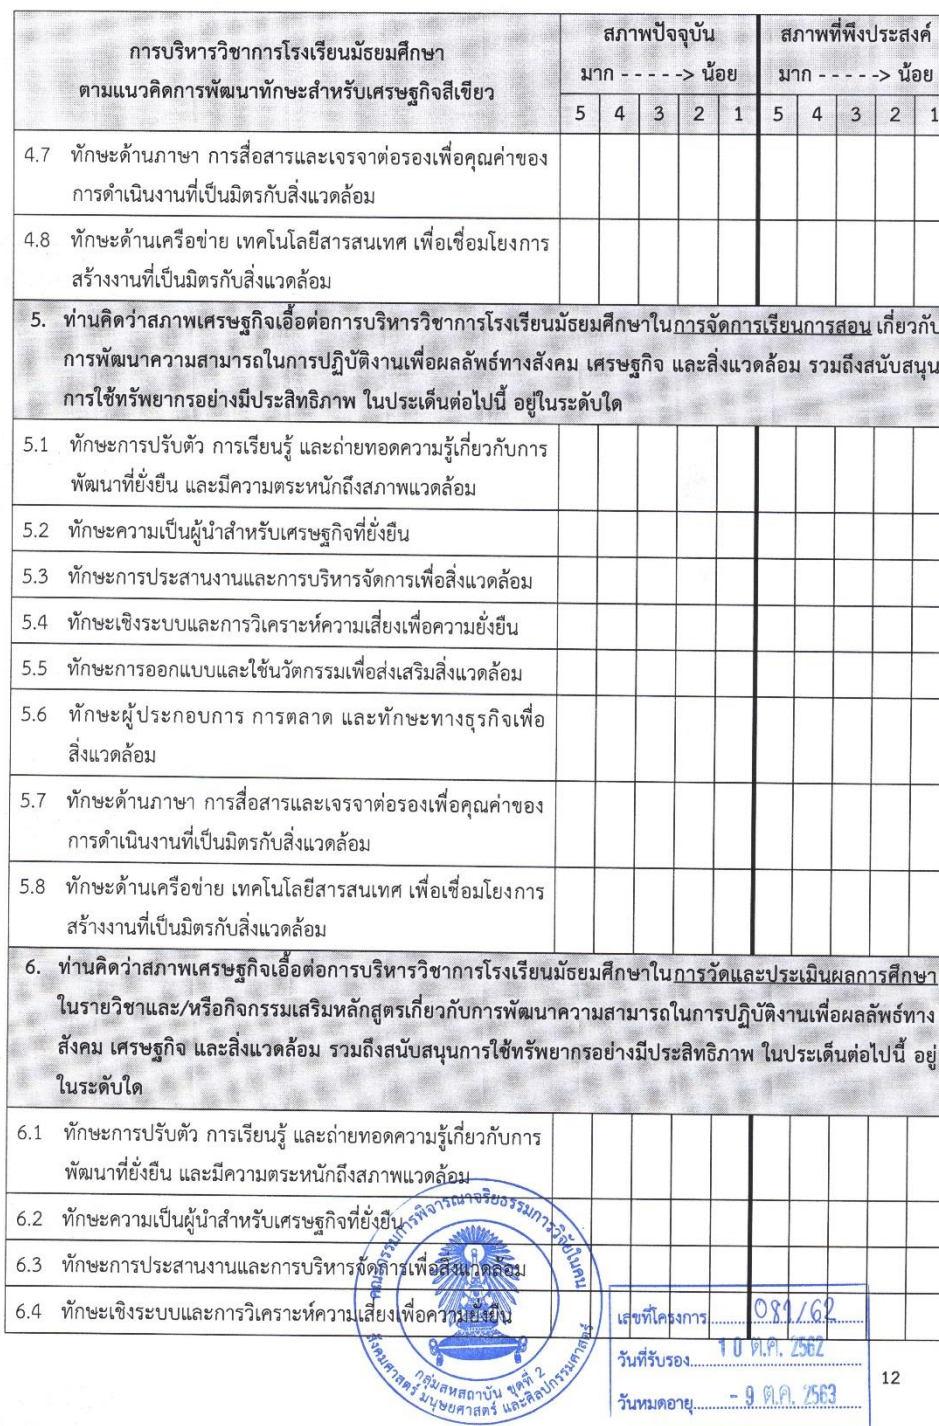 การบริหารวิชาการโรงเรียนมัธยมศึกษา
ตามแนวคิดการพัฒนาทักษะสำหรับเศรษฐกิจสีเขียว
สภาพปัจจุบัน
มาก - - - - -> น้อย
5 4 3 2 1
สภาพที่พึงประสงค์
มาก - - - - -> น้อย
5 4 3 2 1
4.7 ทักษะด้านภาษา การสื่อสารและเจรจาต่อรองเพื่อคุณค่าของ
การดำเนินงานที่เป็นมิตรกับสิ่งแวดล้อม
4.8 ทักษะด้านเครือข่าย เทคโนโลยีสารสนเทศ เพื่อเชื่อมโยงการ
สร้างงานที่เป็นมิตรกับสิ่งแวดล้อม
5. ท่านคิดว่าสภาพเศรษฐกิจเอื้อต่อการบริหารวิชาการโรงเรียนมัธยมศึกษาในการจัดการเรียนการสอน เกี่ยวกับ
การพัฒนาความสามารถในการปฏิบัติงานเพื่อผลลัพธ์ทางสังคม เศรษฐกิจ และสิ่งแวดล้อม รวมถึงสนับสนุน
การใช้ทรัพยากรอย่างมีประสิทธิภาพ ในประเด็นต่อไปนี้ อยู่ในระดับใด
5.1 ทักษะการปรับตัว การเรียนรู้ และถ่ายทอดความรู้เกี่ยวกับการ
พัฒนาที่ยั่งยืน และมีความตระหนักถึงสภาพแวดล้อม
5.2 ทักษะความเป็นผู้นำสำหรับเศรษฐกิจที่ยั่งยืน
5.3 ทักษะการประสานงานและการบริหารจัดการเพื่อสิ่งแวดล้อม
5.4 ทักษะเชิงระบบและการวิเคราะห์ความเสี่ยงเพื่อความยั่งยืน
5.5 ทักษะการออกแบบและใช้นวัตกรรมเพื่อส่งเสริมสิ่งแวดล้อม
5.6 ทักษะผู้ประกอบการ การตลาด และทักษะทางธุรกิจเพื่อ
สิ่งแวดล้อม
5.7 ทักษะด้านภาษา การสื่อสารและเจรจาต่อรองเพื่อคุณค่าของ
การดำเนินงานที่เป็นมิตรกับสิ่งแวดล้อม
5.8 ทักษะด้านเครือข่าย เทคโนโลยีสารสนเทศ เพื่อเชื่อมโยงการ
สร้างงานที่เป็นมิตรกับสิ่งแวดล้อม
6. ท่านคิดว่าสภาพเศรษฐกิจเอื้อต่อการบริหารวิชาการโรงเรียนมัธยมศึกษาในการวัดและประเมินผลการศึกษา
ในรายวิชาและ/หรือกิจกรรมเสริมหลักสูตรเกี่ยวกับการพัฒนาความสามารถในการปฏิบัติงานเพื่อผลลัพธ์ทาง
สังคม เศรษฐกิจ และสิ่งแวดล้อม รวมถึงสนับสนุนการใช้ทรัพยากรอย่างมีประสิทธิภาพ ในประเด็นต่อไปนี้ อยู่
ในระดับใด
6.1 ทักษะการปรับตัว การเรียนรู้ และถ่ายทอดความรู้เกี่ยวกับการ
พัฒนาที่ยั่งยืน และมีความตระหนักถึงสภาพแวดล้อม
6.2 ทักษะความเป็นผู้นำสำหรับเศรษฐกิจที่ยั่งยืน
6.3 ทักษะการประสานงานและการบริหารจัดการเพื่อสิ่งแวดล้อม
6.4 ทักษะเชิงระบบและการวิเคราะห์ความเสี่ยงเพื่อความยั่งยืน
คณะกรรมการพิจารณาจริยธรรมการวิจัยในคน
กลุ่มสหสถาบัน ชุดที่ 2
สังคมศาสตร์ มนุษยศาสตร์ และศิลปกรรมศาสตร์
เลขที่โครงการ 081/62
วันที่รับรอง 10 ต.ค. 2562
วันหมดอายุ - 9 ต.ค. 2563
12